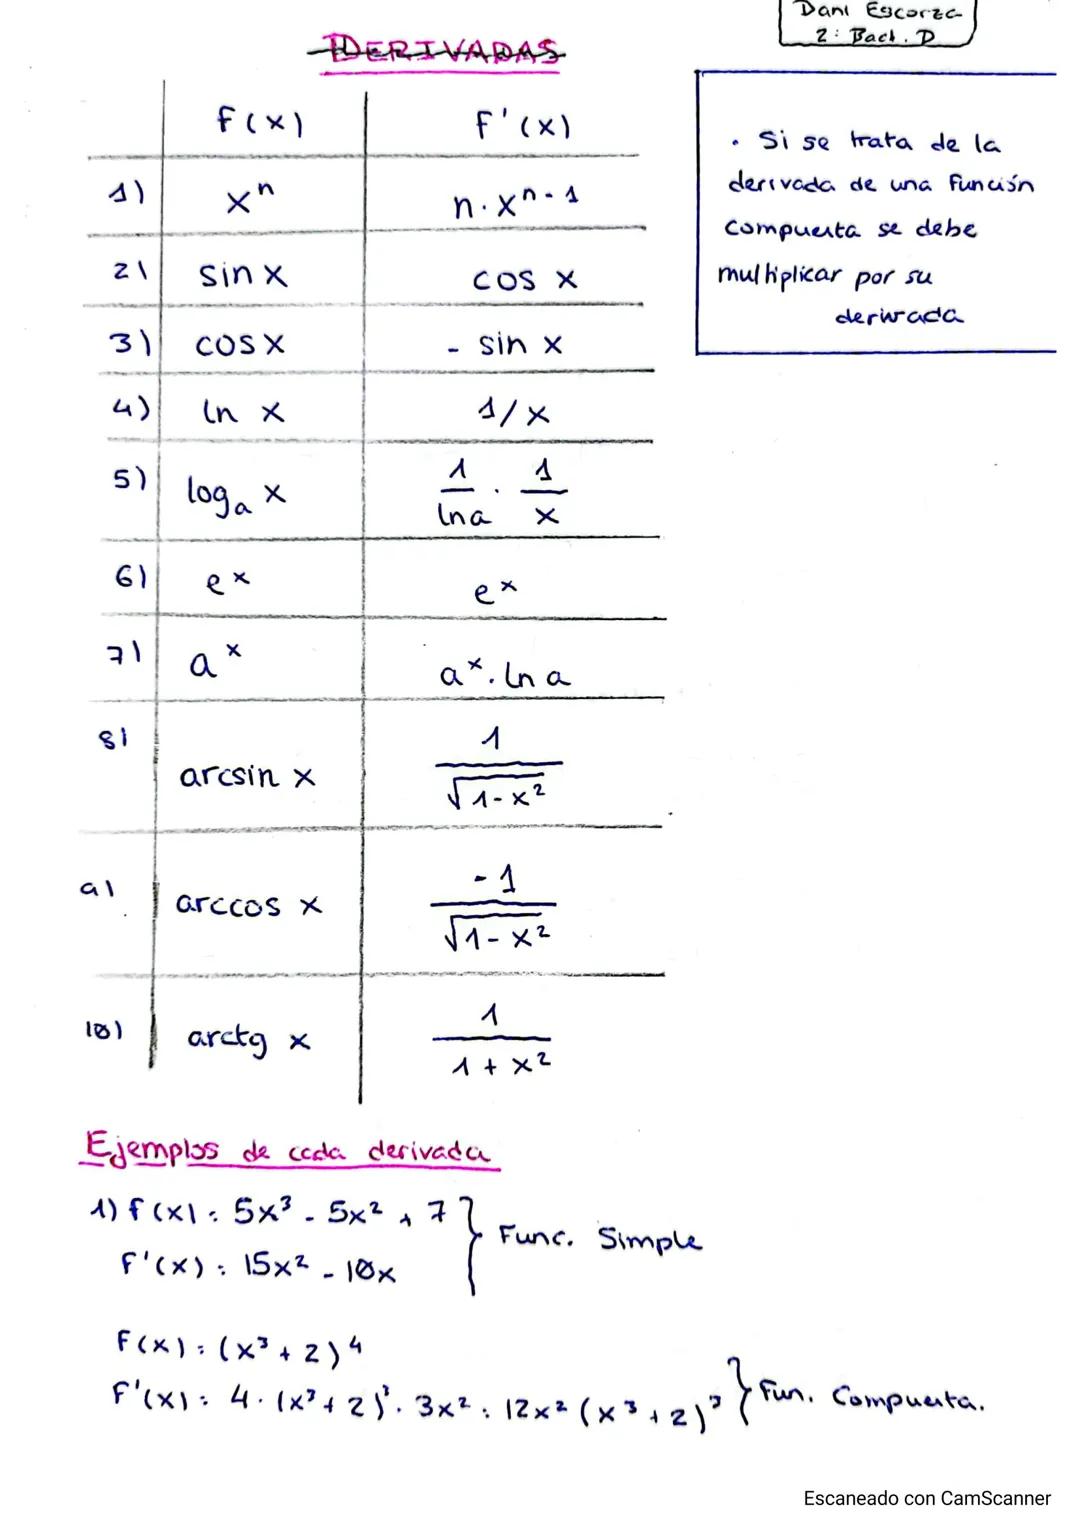 Dani Escorza
2º Bach. D
DERIVADAS
f(x) f'(x)
1) xⁿ n·xⁿ⁻¹
2) sin x cos x
3) cos x - sin x
4) ln x 1/x
5) logₐ x 1/ln a · 1/x
6) eˣ eˣ
7) aˣ aˣ·ln a
8) arcsin x 1/√(1-x²)
9) arccos x -1/√(1-x²)
10) arctg x 1/(1+x²)
· Si se trata de la
derivada de una función
compuesta se debe
multiplicar por su
derivada
Ejemplos de cada derivada
1) f(x) = 5x³ - 5x² + 7 } Func. Simple
f'(x) = 15x² - 10x
f(x) = (x³ + 2)⁴
f'(x) = 4·(x³+2)³·3x² = 12x²(x³+2)³ } Fun. Compuesta.
Escaneado con CamScanner